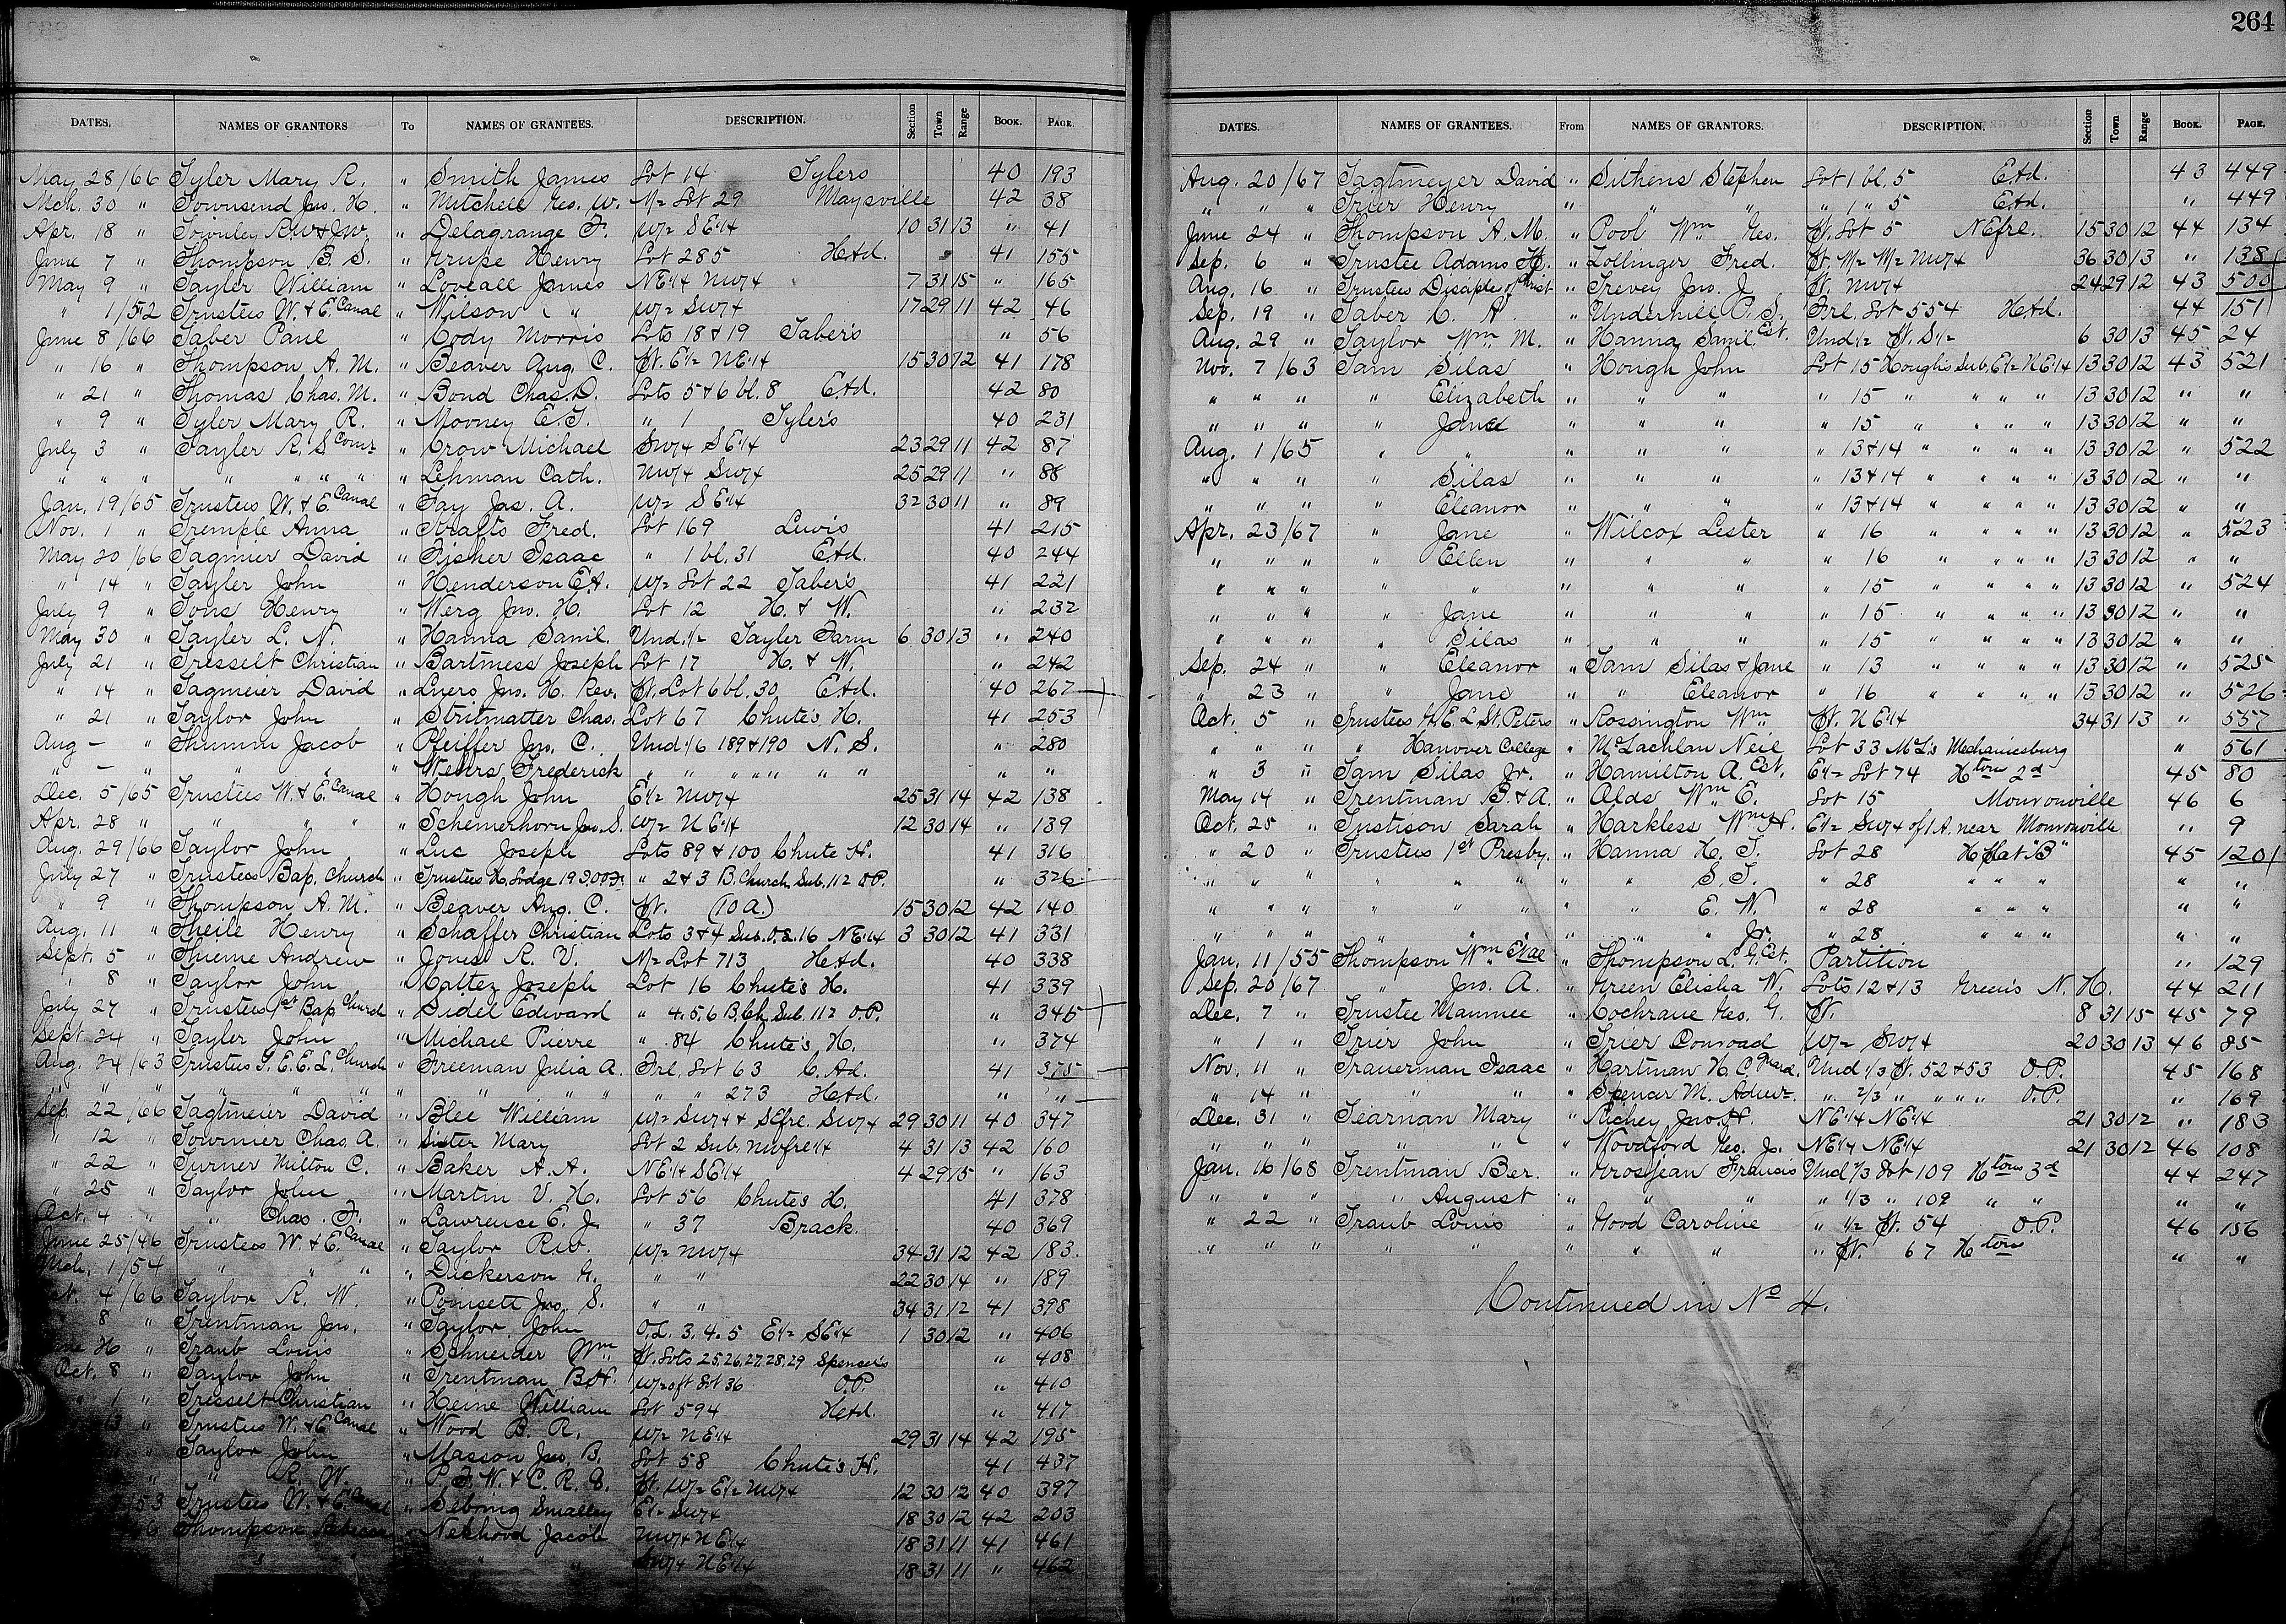 264
DATES. NAMES OF GRANTORS To NAMES OF GRANTEES. DESCRIPTION. Section Town Range BOOK. PAGE.
May 28/66 Tyler Mary R. " Smith James Lot 14 Tylers 40 193
Mch. 30 " Townsend Jas. H. " Mitchell Geo. W. N½ Lot 29 Maysville 42 38
Apr. 18 " Townley R.W & J.W. " Delagrange F. W½ SE¼ 10 31 13 " 41
June 7 " Thompson B. S. " Kruse Henry Lot 285 Had. 41 155
May 9 " Tayler William " Loveall James NE¼ NW¼ 7 31 15 " 165
" 1/52 Trustees W. & E. Canal " Wilson " " W½ SW¼ 17 29 11 42 46
June 8/66 Taber Paul " Cody Morris Lots 18 & 19 Taber's " 56
" 16 " Thompson A. M. " Beaver Aug. C. Pt. E½ NE¼ 15 30 12 41 178
" 21 " Thomas Chas. M. " Bond Chas. D. Lots 5 & 6 bl. 8 Ead. 42 80
" 9 " Tyler Mary R. " Mooney E. T. " 1 Tyler's 40 231
July 3 " Tayler R. S Comr " Crow Michael SW¼ SE¼ 23 29 11 42 87
" " " " " " " " Lehman Cath. NW¼ SW¼ 25 29 11 " 88
Jan. 19/65 Trustees W. & E. Canal " Fay Jas. A. W½ SE¼ 32 30 11 " 89
Nov. 1 " Tremple Anna " Krafts Fred. Lot 169 Lewis 41 215
May 20/66 Tagmier David " Fisher Isaac " 1 bl. 31 Ead. 40 244
" 14 " Tayler John " Henderson E.A. W½ Lot 22 Taber's 41 221
July 9 " Tons Henry " Werg Jno. H. Lot 12 H. & W. " 232
May 30 " Tayler L. N. " Hanna Saml. Und. ½ Tayler Farm 6 30 13 " 240
July 21 " Tresselt Christian " Bartmess Joseph Lot 17 H. & W. " 242
" 14 " Tagmeier David " Luers Jno. H. Rev. Pt. Lot 6 bl. 30 Ead. 40 267
" 21 " Taylor John " Stritmatter Chas. Lot 67 Chute's H. 41 253
Aug — " Thumm Jacob " Pfeiffer Jno. C. Und. 1/6 189 & 190 N. S. " 280
" — " " " " Weurs Frederick " " " " " " " " "
Dec. 5/65 Trustees W. & E. Canal " Hough John E½ NW¼ 25 31 14 42 138
Apr. 28 " " " " " Schemerhorn Jno. S. W½ NE¼ 12 30 14 " 139
Aug. 29/66 Taylor John " Luc Joseph Lots 89 & 100 Chute H. 41 316
July 27 " Trustees Bap. Church " Trustees H. Lodge 19 I.O.O.F. " 2 & 3 B. Church Sub. 112 O.P. " 326
" 9 " Thompson A. M. " Beaver Aug. C. Pt. (10 A.) 15 30 12 42 140
Aug. 11 " Theile Henry " Schaffer Christian Lots 3 & 4 Sub. O.L. 16 NE¼ 3 30 12 41 331
Sept. 5 " Thieme Andrew " Jones R. V. N½ Lot 713 Had. 40 338
" 8 " Taylor John " Hattez Joseph Lot 16 Chute's H. 41 339
July 27 " Trustees 1st Bap Church " Sidel Edward " 4. 5. 6 B. Ch. Sub. 112 O.P. " 345
Sept. 24 " Tayler John " Michael Pierre " 84 Chute's H. " 374
Aug. 24/63 Trustees G. E. E. L. Church " Freeman Julia A. Frl. Lot 63 C. Ad. 41 375
" " " " " " " " " " " " 273 Had. " "
Sep. 22/66 Tagtmeier David " Blee William W½ SW¼ & SEfrl. SW¼ 29 30 11 40 347
" 12 " Tournier Chas. A. " Suter Mary Lot 2 Sub. NWfrl¼ 4 31 13 42 160
" 22 " Turner Milton C. " Baker A. A. NE¼ SE¼ 4 29 15 " 163
" 25 " Taylor John " Martin V. H. Lot 56 Chute's H. 41 378
Oct. 4 " " Chas. F. " Lawrence E. J. " 37 Brack. 40 369
June 25/46 Trustees W. & E. Canal " Taylor R.W. W½ NW¼ 34 31 12 42 183
Mch. 1/54 " " " " Dickerson G. " " 22 30 14 " 189
4/66 Taylor R. W. " Poinsett Jno. S. " " 34 31 12 41 398
8 " Trentman Jno. " Taylor John O.L. 3. 4. 5 E½ SE¼ 1 30 12 " 406
" Traub Louis " Schneider Wm. Pt. Lots 25, 26, 27, 28, 29 Spencer's " 408
Oct. 8 " Taylor John " Trentman B.H. W½ of Lot 36 O.P. " 410
1 " Tresselt Christian " Heine William Lot 594 Had. " 417
13 " Trustees W. & E. Canal " Wood B. R. W½ NE¼ 29 31 14 42 195
" Taylor John " Masson Jno. B. Lot 58 Chute's H. 41 437
" " R. W. " P. F. W. & C. R. R. Pt. W½ E½ NW¼ 12 30 12 40 397
/53 Trustees W. & E. Canal " Sebring Smalley E½ SW¼ 18 30 12 42 203
Thompson Rebecca " Nekhord Jacob NW¼ NE¼ 18 31 11 41 461
" " " SW¼ NE¼ 18 31 11 " 462
DATES. NAMES OF GRANTEES. From NAMES OF GRANTORS. DESCRIPTION. Section Town Range BOOK. PAGE.
Aug. 20/67 Tagtmeyer David " Sithens Stephen Lot 1 bl. 5 Ead. 43 449
" " " Trier Henry " " " " 1 " 5 Ead. " 449
June 24 " Thompson A. M. " Pool Wm. Geo. Pt. Lot 5 NEfrl. 15 30 12 44 134
Sep. 6 " Trustee Adams H. " Lollinger Fred. Pt. W½ W½ NW¼ 36 30 13 " 138
Aug. 16 " Trustees Disciple of Christ " Trevey Jno. J Pt. NW¼ 24 29 12 43 500
Sep. 19 " Taber C. A. " Underhill P. S. Frl. Lot 554 Had. 44 151
Aug. 29 " Taylor Wm. M. " Hanna Saml. Est. Und ½ Pt. S½ 6 30 13 45 24
Nov. 7/63 Tam Silas " Hough John Lot 15 Hough's Sub. E½ NE¼ 13 30 12 43 521
" " " " Elizabeth " " " " 15 " " " " 13 30 12 " "
" " " " Jane " " " " 15 " " " " 13 30 12 " "
Aug. 1/65 " " " " " " 13 & 14 " " " " 13 30 12 " 522
" " " " Silas " " " " 13 & 14 " " " " 13 30 12 " "
" " " " Eleanor " " " " 13 & 14 " " " " 13 30 12 " "
Apr. 23/67 " Jane " Wilcox Lester " 16 " " " " 13 30 12 " 523
" " " " Ellen " " " " 16 " " " " 13 30 12 " "
" " " " " " " " " 15 " " " " 13 30 12 " 524
" " " " Jane " " " " 15 " " " " 13 30 12 " "
" " " " Silas " " " " 15 " " " " 13 30 12 " "
Sep. 24 " " Eleanor " Tam Silas & Jane " 13 " " " " 13 30 12 " 525
" 23 " " Jane " " Eleanor " 16 " " " " 13 30 12 " 526
Oct. 5 " Trustees G. E. L. St. Peters " Rossington Wm. Pt. NE¼ 34 31 13 " 557
" " " " Hanover College " McLachlan Neil Lot 33 McL's Mechanicsburg " 561
" 3 " Tam Silas Jr. " Hamilton A. Est. E½ Lot 74 Hton 2d 45 80
May 14 " Trentman B. & A. " Alds Wm. E. Lot 15 Monroeville 46 6
Oct. 25 " Tustison Sarah " Harkless Wm. H. E½ SW¼ of 1 A. near Monroeville " 9
" 20 " Trustees 1st Presby. " Hanna H. T. Lot 28 H Plat "B" 45 120
" " " " " " " " S. T. " 28 " " " " "
" " " " " " " " E. W. " 28 " " " " "
" " " " " " " " " Jr. " 28 " " " " "
Jan. 11/55 Thompson Wm. Etal " Thompson L. G. Est. Partition " 129
Sep. 20/67 " Jno. A. " Green Elisha W. Lots 12 & 13 Green's N. H. 44 211
Dec. 7 " Trustee Maumee " Cochrane Geo. G. Pt. 8 31 15 45 79
" 1 " Trier John " Trier Conroad W½ SW¼ 20 30 13 46 85
Nov. 11 " Trauerman Isaac " Hartman H. C. Guard. Und 1/3 Pt. 52 & 53 O.P. 45 168
" 14 " " " " Spencer M. Admr. " 2/3 " " " " O.P. " 169
Dec. 31 " Tearnan Mary " Richey Jno. H. NE¼ NE¼ 21 30 12 " 183
" " " " " " Woodford Geo. Jr. NE¼ NE¼ 21 30 12 46 108
Jan. 16/68 Trentman Ber. " Grosjean Francis Und 1/3 Lot 109 Hton 3d 44 247
" " " " August " " " " 1/3 " 109 " " " "
" 22 " Traub Louis " Hood Caroline " ½ Pt. 54 O.P. 46 156
" " " " " " " " " Pt. 67 Hton " "
Continued in No 4.